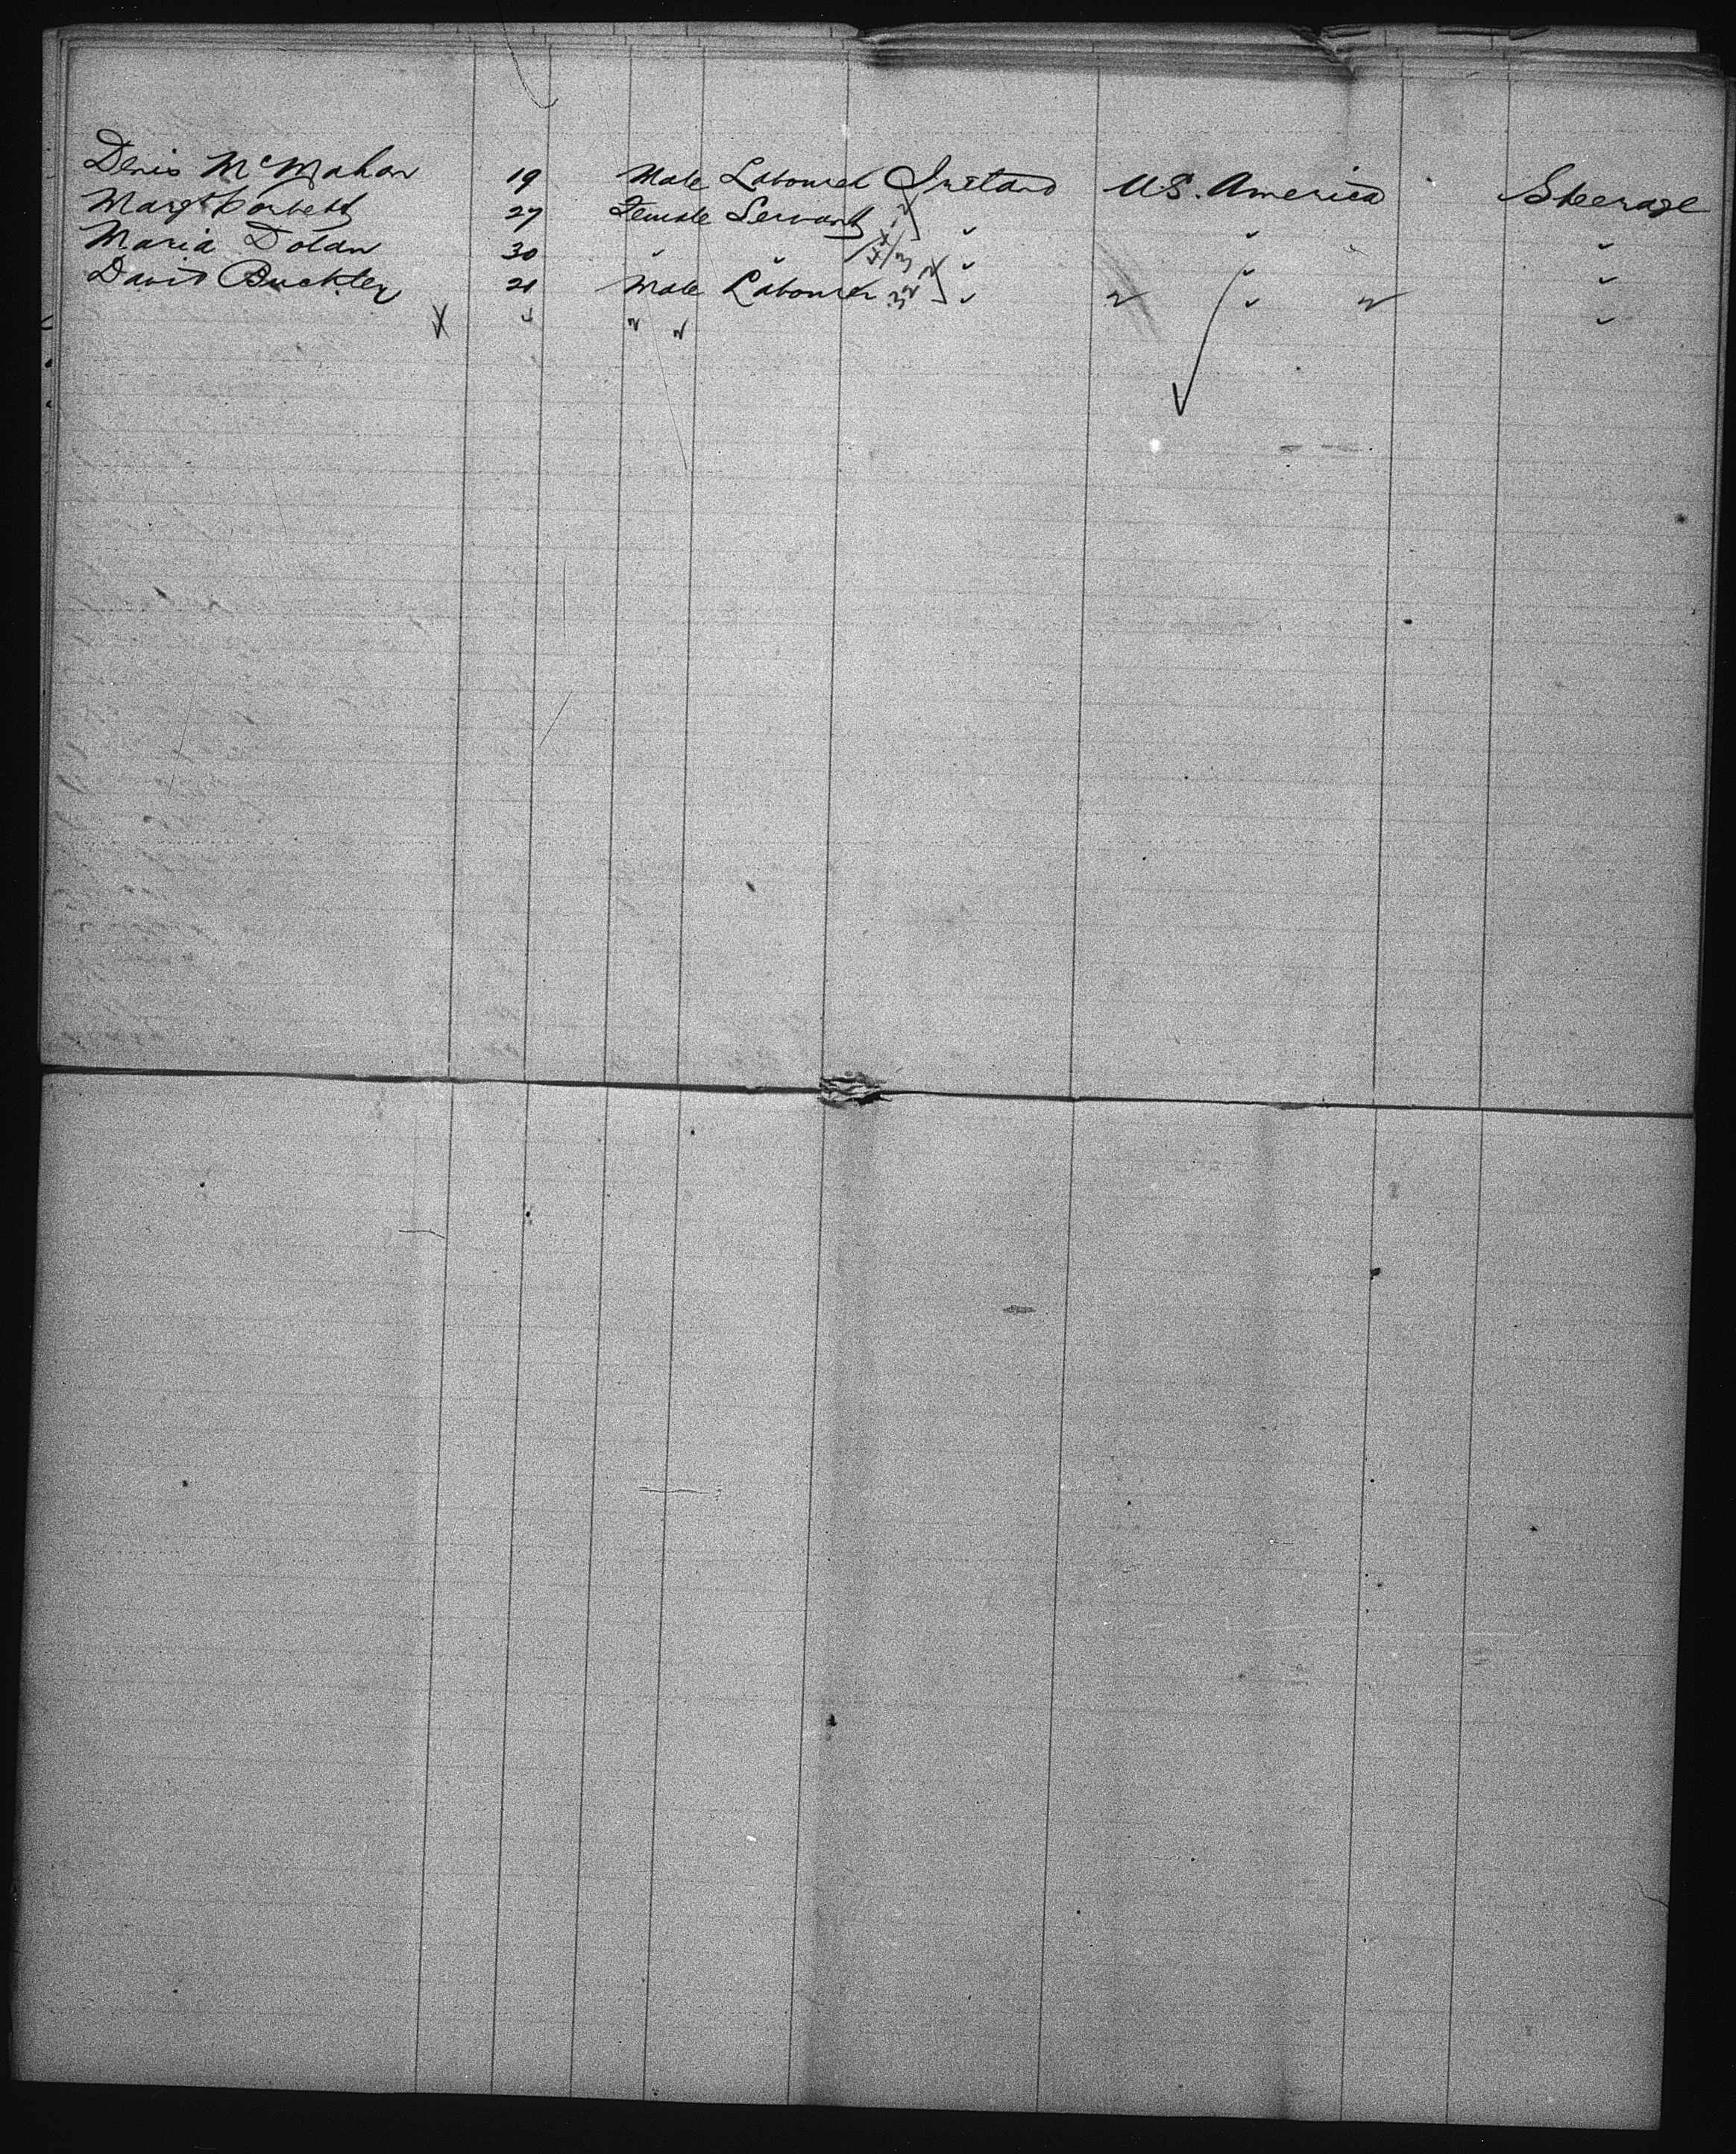 Denis McMahon 19 Male Labourer Ireland U.S. America Steerage
Margt Corbett 27 Female Servant " " "
Maria Dolan 30 " " " " "
David Buckley 21 Male Labourer " " " " "